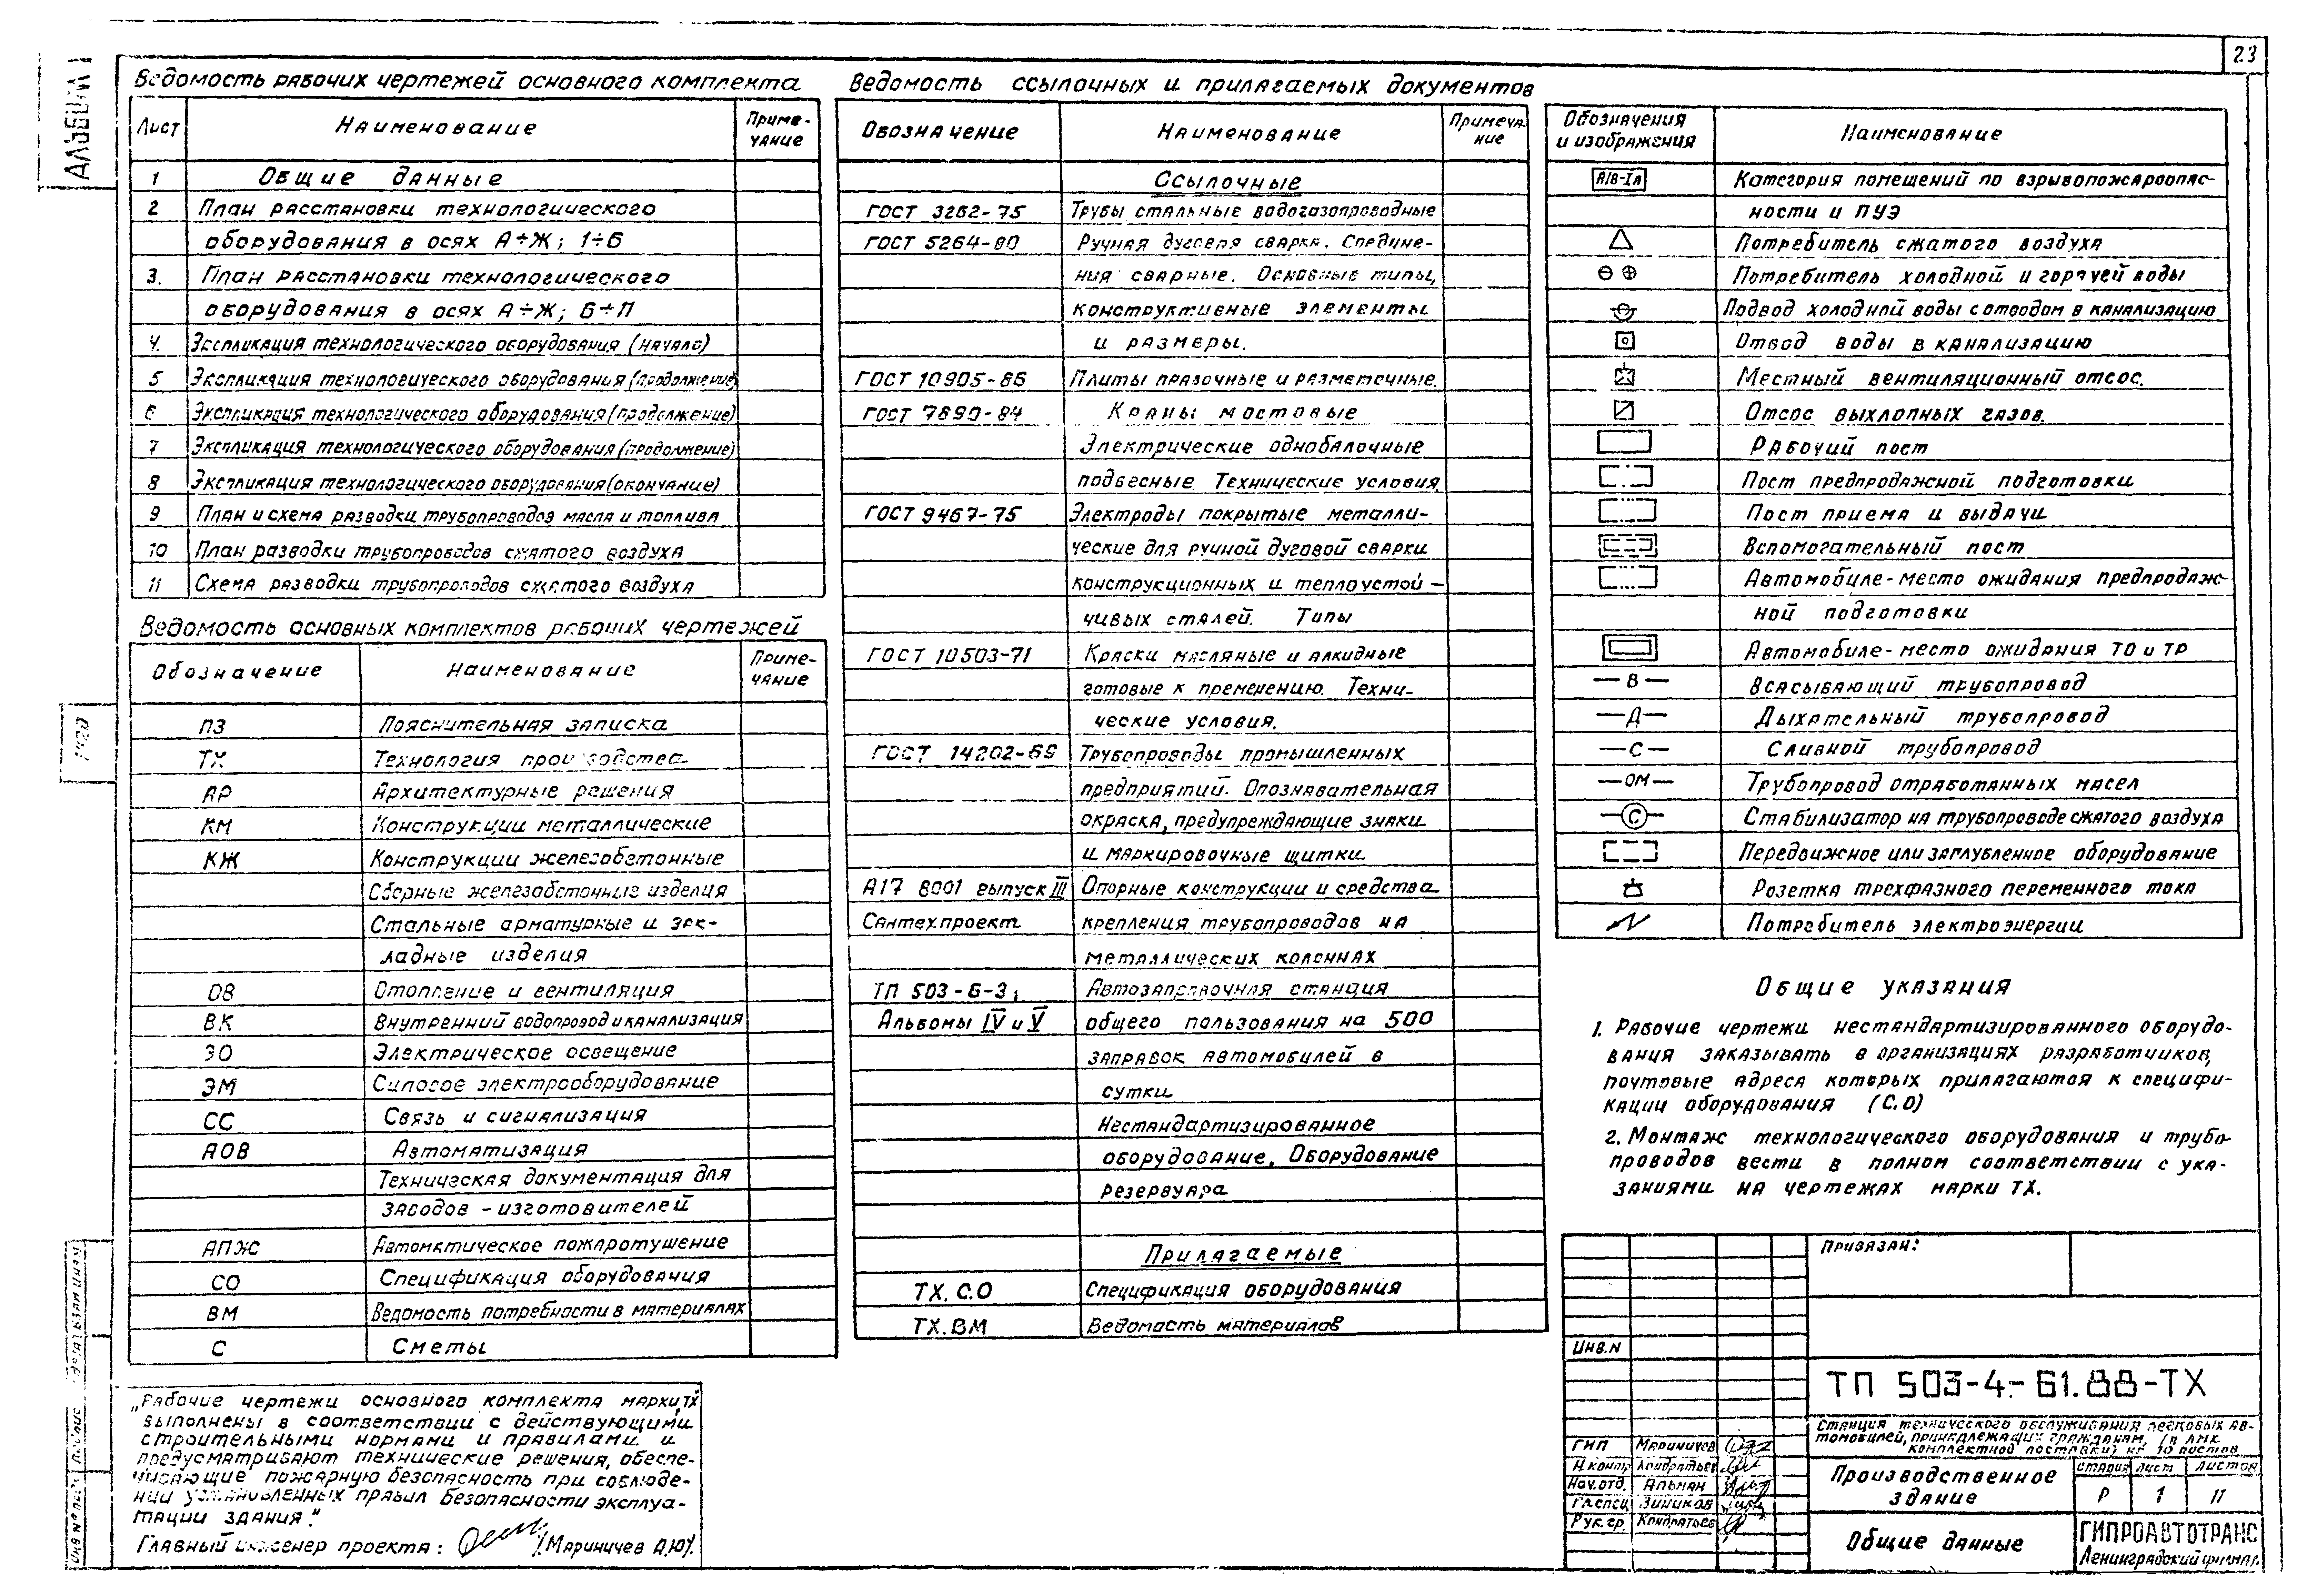 23
АЛЬБОМ I
Ведомость рабочих чертежей основного комплекта
Лист Наименование Приме-
чание
1 Общие данные
2 План расстановки технологического
оборудования в осях А÷Ж; 1÷6
3. План расстановки технологического
оборудования в осях А÷Ж; 6÷11
4. Экспликация технологического оборудования (начало)
5 Экспликация технологического оборудования (продолжение)
6 Экспликация технологического оборудования (продолжение)
7 Экспликация технологического оборудования (продолжение)
8 Экспликация технологического оборудования (окончание)
9 План и схема разводки трубопроводов масла и топлива
10 План разводки трубопроводов сжатого воздуха
11 Схема разводки трубопроводов сжатого воздуха
Ведомость основных комплектов рабочих чертежей
Обозначение Наименование Приме-
чание
ПЗ Пояснительная записка
ТХ Технология производства
АР Архитектурные решения
КМ Конструкции металлические
КЖ Конструкции железобетонные
Сборные железобетонные изделия
Стальные арматурные и зак-
ладные изделия
ОВ Отопление и вентиляция
ВК Внутренний водопровод и канализация
ЭО Электрическое освещение
ЭМ Силовое электрооборудование
СС Связь и сигнализация
АОВ Автоматизация
Техническая документация для
заводов-изготовителей
АПЖ Автоматическое пожаротушение
СО Спецификация оборудования
ВМ Ведомость потребности в материалах
С Сметы
„Рабочие чертежи основного комплекта марки „ТХ"
выполнены в соответствии с действующими
строительными нормами и правилами и
предусматривают технические решения, обеспе-
чивающие пожарную безопасность при соблюде-
нии установленных правил безопасности эксплуа-
тации здания."
Главный инженер проекта: /Мариничев А.Ю/.
Ведомость ссылочных и прилагаемых документов
Обозначение Наименование Примеча
ние
Ссылочные
ГОСТ 3262-75 Трубы стальные водогазопроводные
ГОСТ 5264-80 Ручная дуговая сварка. Соедине-
ния сварные. Основные типы,
конструктивные элементы
и размеры.
ГОСТ 10905-86 Плиты правочные и разметочные.
ГОСТ 7890-84 Краны мостовые
Электрические однобалочные
подвесные. Технические условия.
ГОСТ 9467-75 Электроды покрытые металли-
ческие для ручной дуговой сварки
конструкционных и теплоустой-
чивых сталей. Типы
ГОСТ 10503-71 Краски масляные и алкидные
готовые к применению. Техни-
ческие условия.
ГОСТ 14202-69 Трубопроводы промышленных
предприятий. Опознавательная
окраска, предупреждающие знаки
и маркировочные щитки.
А17 8001 выпуск III Опорные конструкции и средства
Сантехпроект крепления трубопроводов на
металлических колоннах
ТП 503-6-3; Автозаправочная станция
Альбомы IV и V общего пользования на 500
заправок автомобилей в
сутки.
Нестандартизированное
оборудование. Оборудование
резервуара
Прилагаемые
ТХ.С.О Спецификация оборудования
ТХ.ВМ Ведомость материалов
Обозначения
и изображения Наименование
А/В-Iа Категория помещений по взрывопожароопас-
ности и ПУЭ
Потребитель сжатого воздуха
Потребитель холодной и горячей воды
Подвод холодной воды с отводом в канализацию
Отвод воды в канализацию
Местный вентиляционный отсос.
Отсос выхлопных газов.
Рабочий пост
Пост предпродажной подготовки
Пост приема и выдачи
Вспомогательный пост
Автомобиле-место ожидания предпродаж-
ной подготовки
Автомобиле-место ожидания ТО и ТР
—В— Всасывающий трубопровод
—Д— Дыхательный трубопровод
—С— Сливной трубопровод
—ОМ— Трубопровод отработанных масел
—С— Стабилизатор на трубопроводе сжатого воздуха
Передвижное или заглубленное оборудование
Розетка трехфазного переменного тока
Потребитель электроэнергии
Общие указания
1. Рабочие чертежи нестандартизированного оборудо-
вания заказывать в организациях разработчиков,
почтовые адреса которых прилагаются к специфи-
кации оборудования (С.О)
2. Монтаж технологического оборудования и трубо-
проводов вести в полном соответствии с ука-
заниями на чертежах марки ТХ.
Привязан:
Инв.N
ТП 503-4-61.88-ТХ
Станция технического обслуживания легковых ав-
томобилей, принадлежащих гражданам, (в ЛМК
комплектной поставки) на 10 постов
ГИП Мариничев
Н.контр Кондратьев
Нач.отд. Альман
Гл.спец Зиников
Рук.гр. Кондратьев
Производственное
здание
стадия лист листов
Р 1 11
Общие данные
ГИПРОАВТОТРАНС
Ленинградский филиал